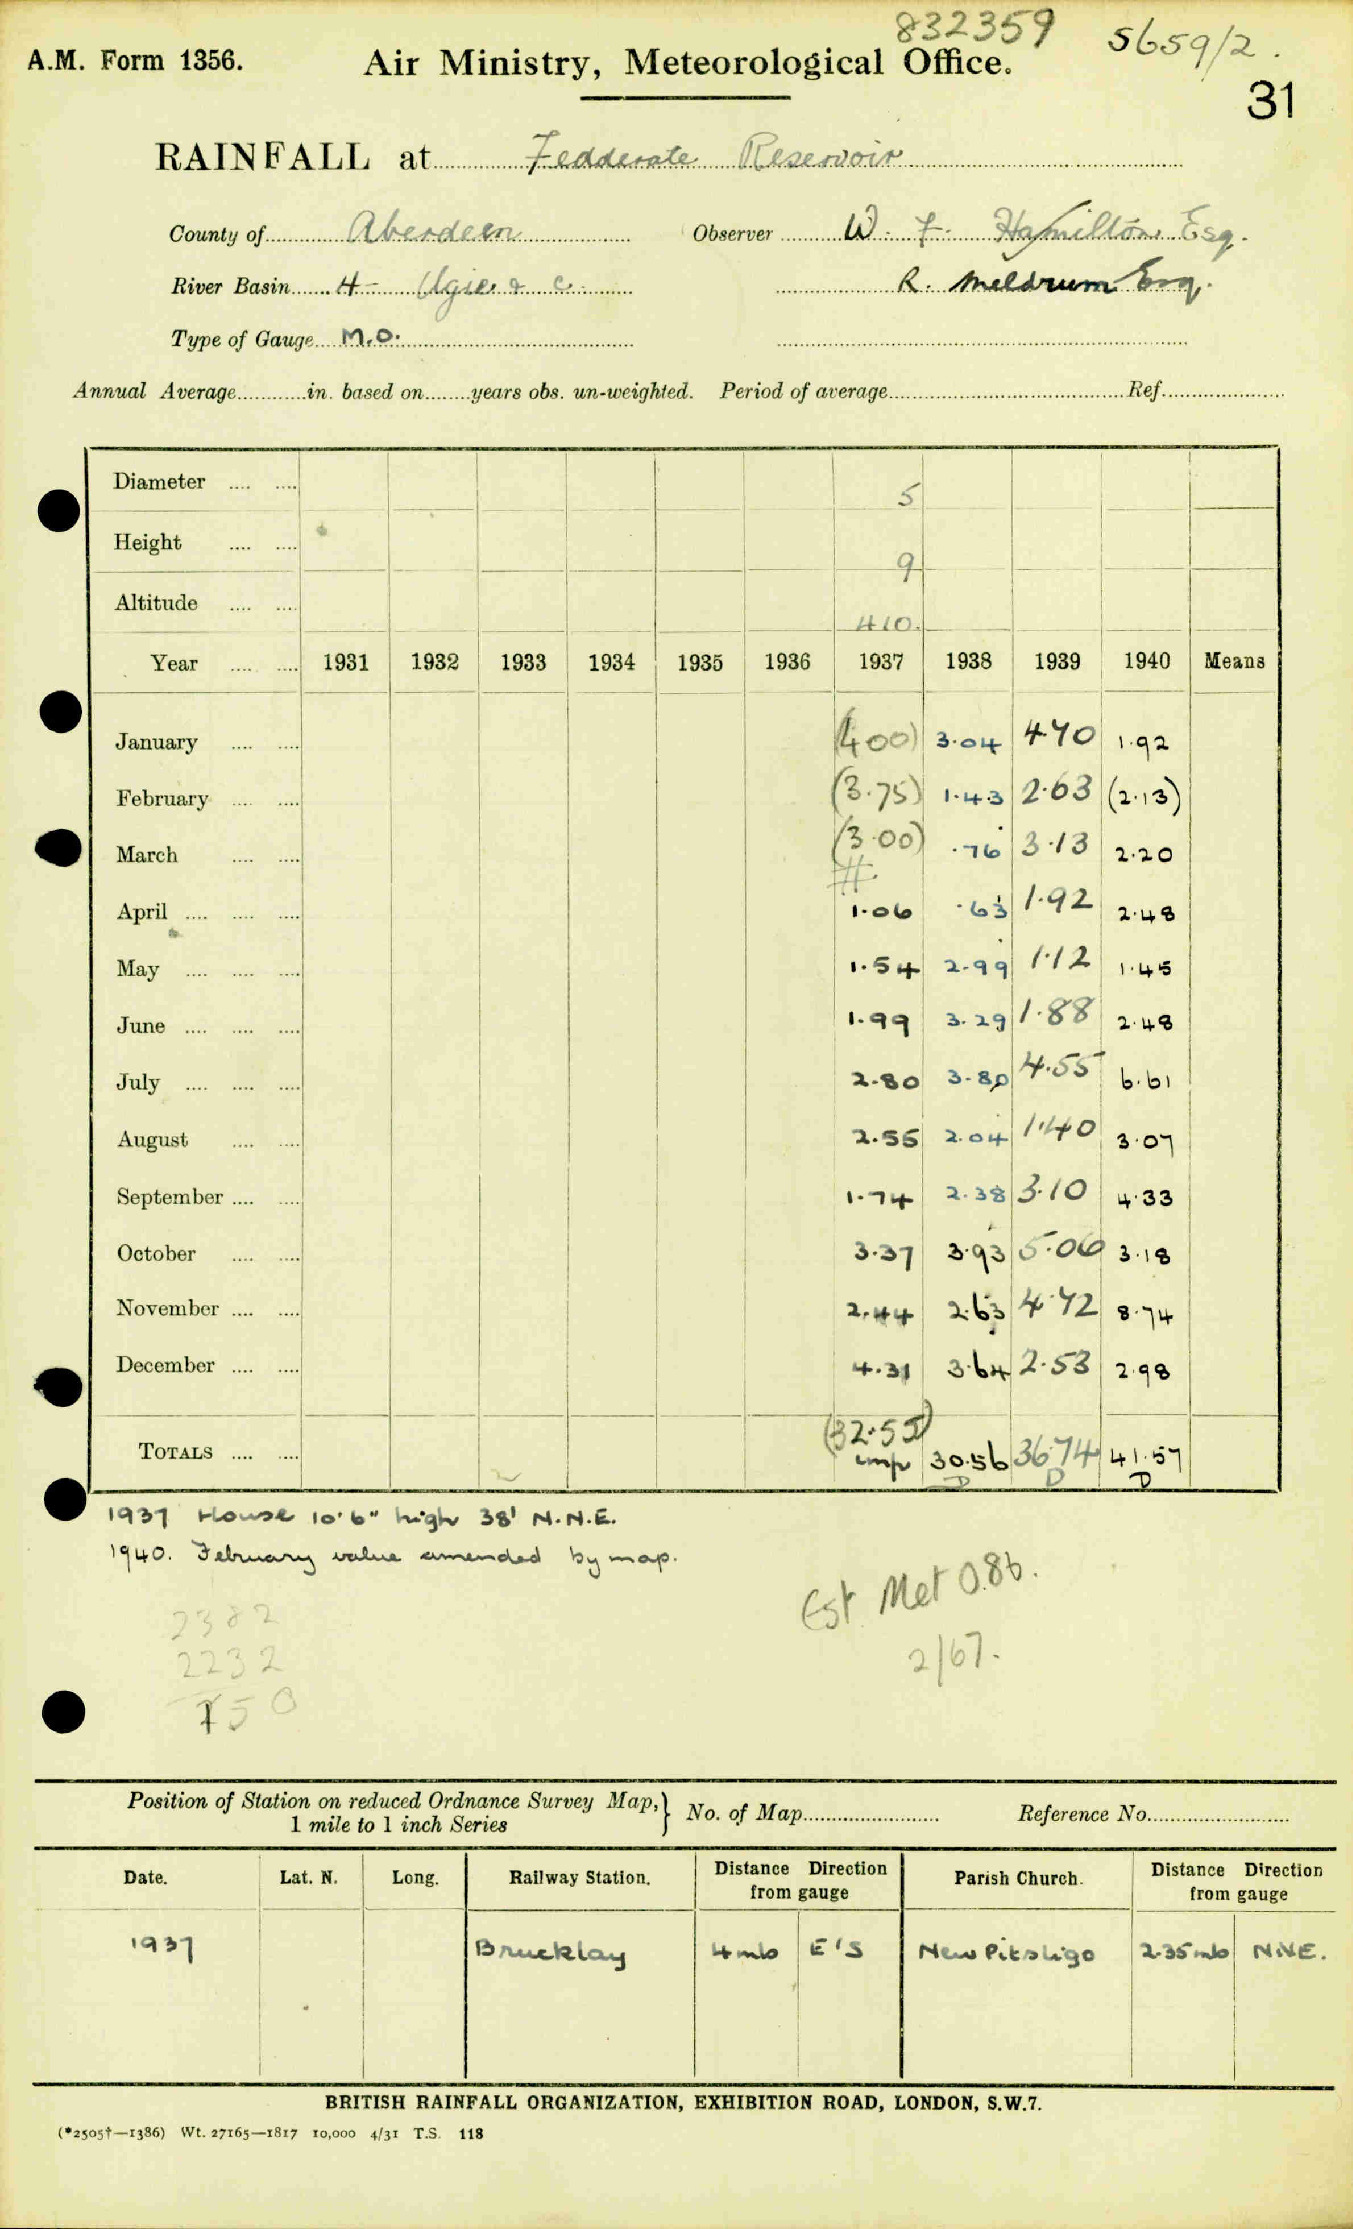 832359 5659/2.
A.M. Form 1356. Air Ministry, Meteorological Office.
31
RAINFALL at Fedderate Reservoir
County of Aberdeen Observer W. F. Hamilton Esq.
River Basin 4 - Ugie & c. R. Meldrum Esq.
Type of Gauge M.O.
Annual Average in. based on years obs. un-weighted. Period of average Ref.
Diameter 5
Height 9
Altitude 410.
Year 1931 1932 1933 1934 1935 1936 1937 1938 1939 1940 Means
January (4.00) 3.04 4.70 1.92
February (3.75) 1.43 2.63 (2.13)
March (3.00) .76 3.13 2.20
April 1.06 .63 1.92 2.48
May 1.54 2.99 1.12 1.45
June 1.99 3.29 1.88 2.48
July 2.80 3.80 4.55 6.61
August 2.55 2.04 1.40 3.07
September 1.74 2.38 3.10 4.33
October 3.37 3.93 5.06 3.18
November 2.44 2.63 4.72 8.74
December 4.31 3.64 2.53 2.98
TOTALS (32.55) 30.56 36.74 41.57
imp D D D
1937 House 10'6" high 38' N.N.E.
1940. February value amended by map.
Est Met O.8b.
2/67.
2382
2232
150
Position of Station on reduced Ordnance Survey Map, 1 mile to 1 inch Series } No. of Map Reference No.
Date. Lat. N. Long. Railway Station. Distance Direction from gauge Parish Church. Distance Direction from gauge
1937 Brucklay 4 mls E'S New Pitsligo 2.35 mls N.N.E.
BRITISH RAINFALL ORGANIZATION, EXHIBITION ROAD, LONDON, S.W.7.
(*2505†—1386) Wt. 27165—1817 10,000 4/31 T.S. 118